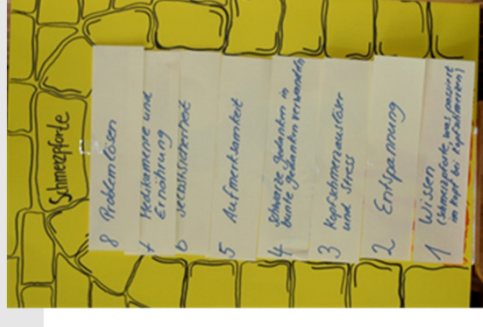 Schmerzpforte
8 Problemlösen
7 Medikamente und
Ernährung
6 Selbstsicherheit
5 Aufmerksamkeit
4 Schwarze Gedanken in
bunte Gedanken verwandeln
3 Kopfschmerzauslöser
und Stress
2 Entspannung
1 Wissen
(Schmerzpforte, was passiert
im Kopf bei Kopfschmerzen)